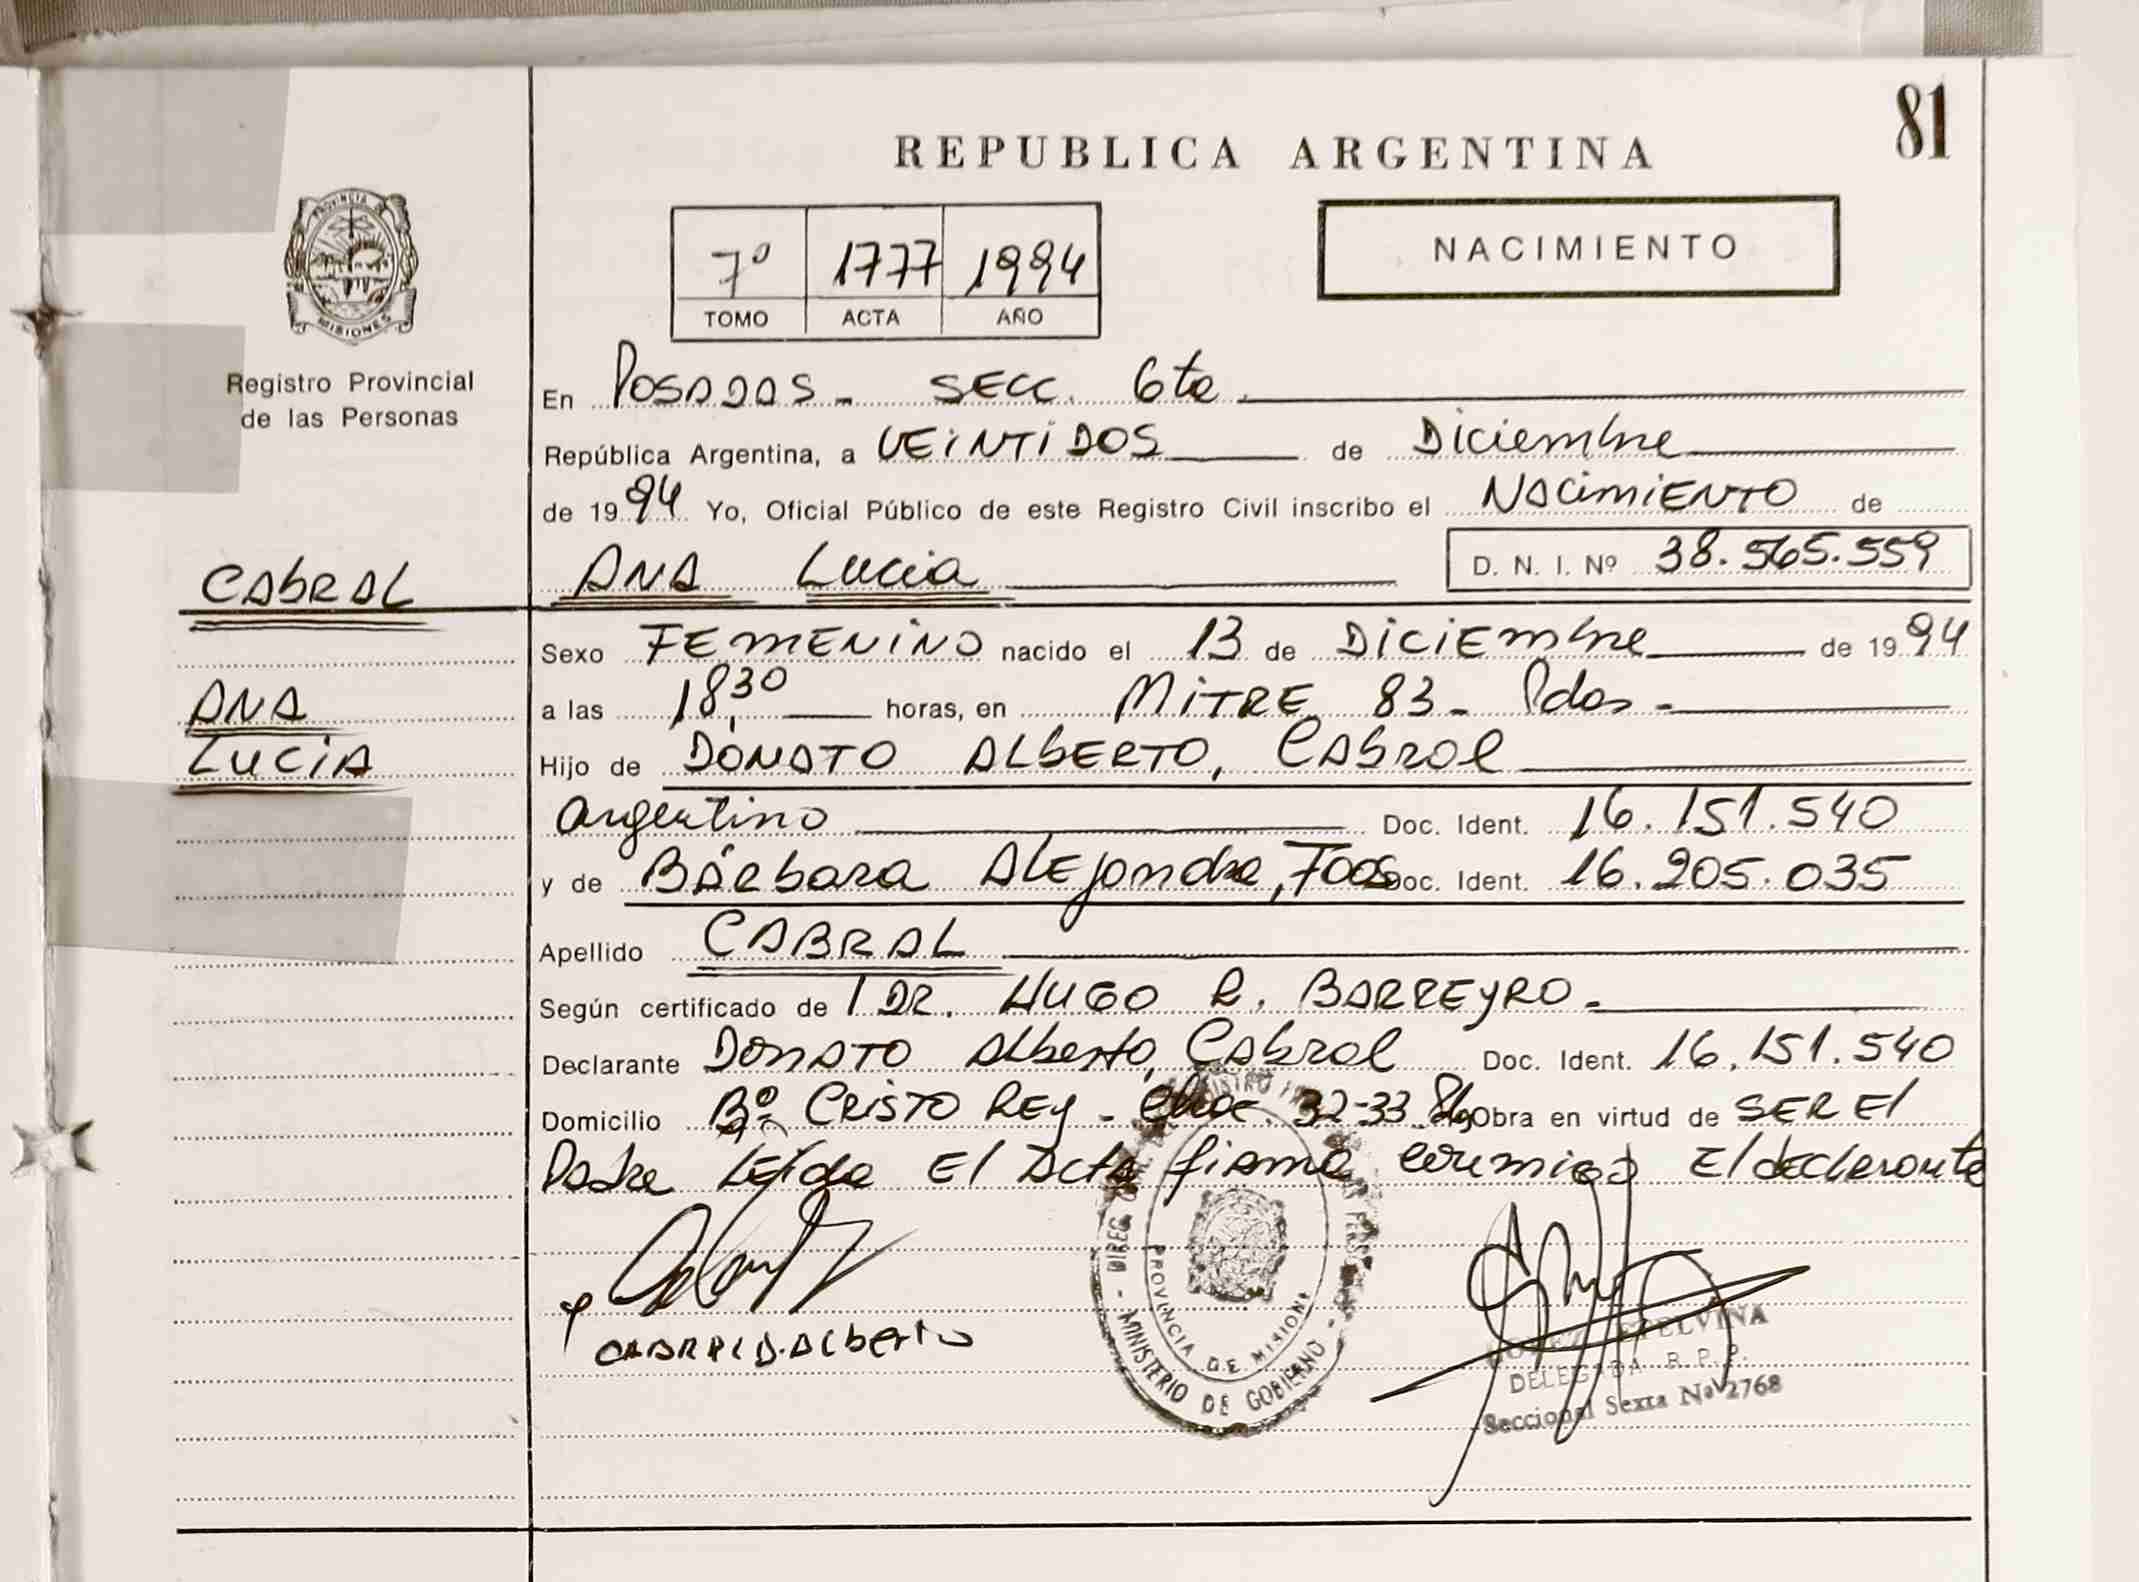 81
REPUBLICA ARGENTINA
PROVINCIA DE
MISIONES
Registro Provincial
de las Personas
7º 1777 1994
TOMO ACTA AÑO
NACIMIENTO
En POSADAS - SECC. 6ta
República Argentina, a VEINTIDOS de Diciembre
de 1994 Yo, Oficial Público de este Registro Civil inscribo el NACIMIENTO de
CABRAL ANA Lucia D. N. I. Nº 38.565.559
Sexo FEMENINO nacido el 13 de DICIEMbre de 1994
ANA a las 18,30 horas, en MITRE 83 - Pdas -
LUCIA Hijo de DONATO ALBERTO, CABRAL
Argentino Doc. Ident. 16.151.540
y de BÁRBARA ALEJANDRA, Doc. Ident. 16.205.035
Apellido CABRAL
Según certificado de DR. HUGO R. BARREYRO -
Declarante DONATO Alberto, Cabral Doc. Ident. 16.151.540
Domicilio Bº CRISTO REY - 32-33 Obra en virtud de SER El
Padre Leída El Acta firma conmigo El declarante
CABRAL D. Alberto
MINISTERIO DE GOBIERNO
PROVINCIA DE MISIONES
ETELVINA
DELEGADA R.P.P.
Seccional Sexta Nº 2768